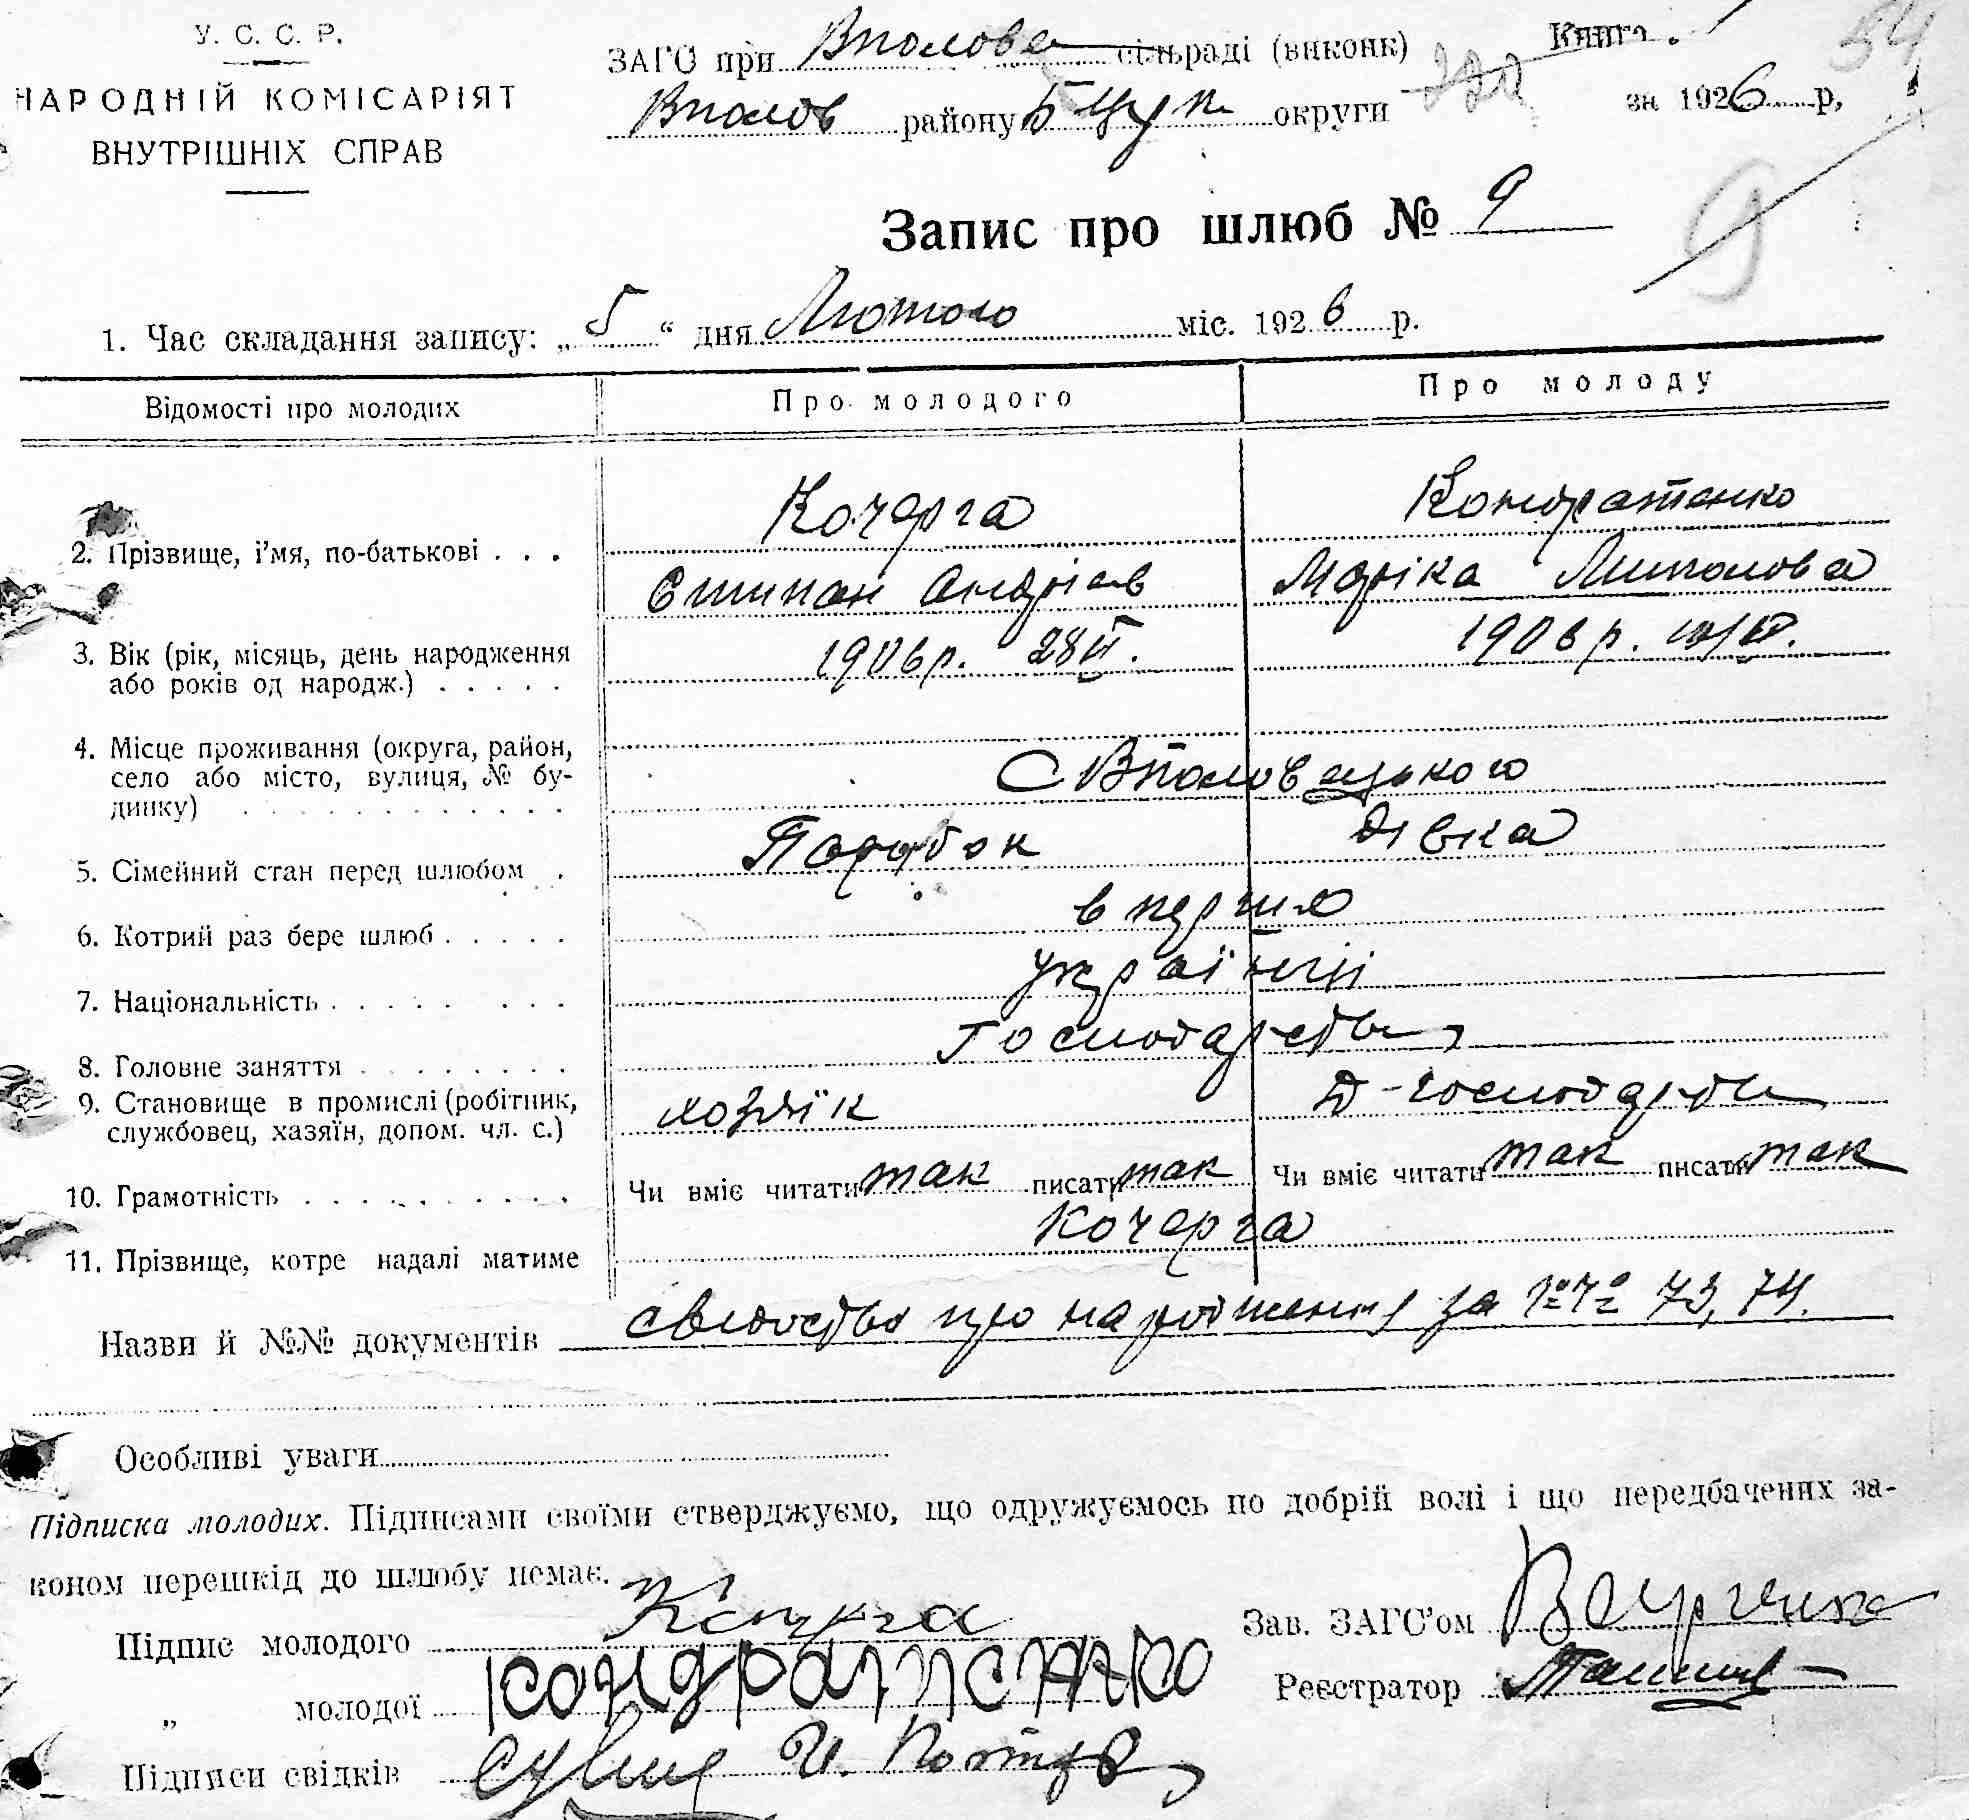 У. С. С. Р.
НАРОДНІЙ КОМІСАРІЯТ
ВНУТРІШНІХ СПРАВ
ЗАГС при Вполова сільраді (виконк)
Вполов району Б Церк округи
Книга
54
за 1926 р,
Запис про шлюб № 9
9
1. Час складання запису: „5“ дня Лютого міс. 1926 р.
Відомості про молодих Про молодого Про молоду
Кочерга Кондратенко
2. Прізвище, і'мя, по-батькові . . .
Степан Андріев Маріка
3. Вік (рік, місяць, день народження
або років од народж.) . . . . .
1906 р. 1906 р.
4. Місце проживання (округа, район,
село або місто, вулиця, № бу-
динку)
С Вполовецького
5. Сімейний стан перед шлюбом . . Парубок дівка
6. Котрий раз бере шлюб . . . . . в перше
7. Національність . . . . . . . . українці
8. Головне заняття . . . . . . . .
9. Становище в промислі (робітник,
службовец, хазяїн, допом. чл. с.)
10. Грамотність . . . . . . . . . . Чи вміє читати так писати так Чи вміє читати так писати так
11. Прізвище, котре надалі матиме Кочерга
Назви й №№ документів про народження за №№ 73, 74.
Особливі уваги
Підписка молодих. Підписами своїми стверджуємо, що одружуємось по добрій волі і що передбачених за-
коном перешкід до шлюбу немає.
Підпис молодого Кочерга
Зав. ЗАГС'ом
„ молодої Кондратенко
Реєстратор
Підписи свідків